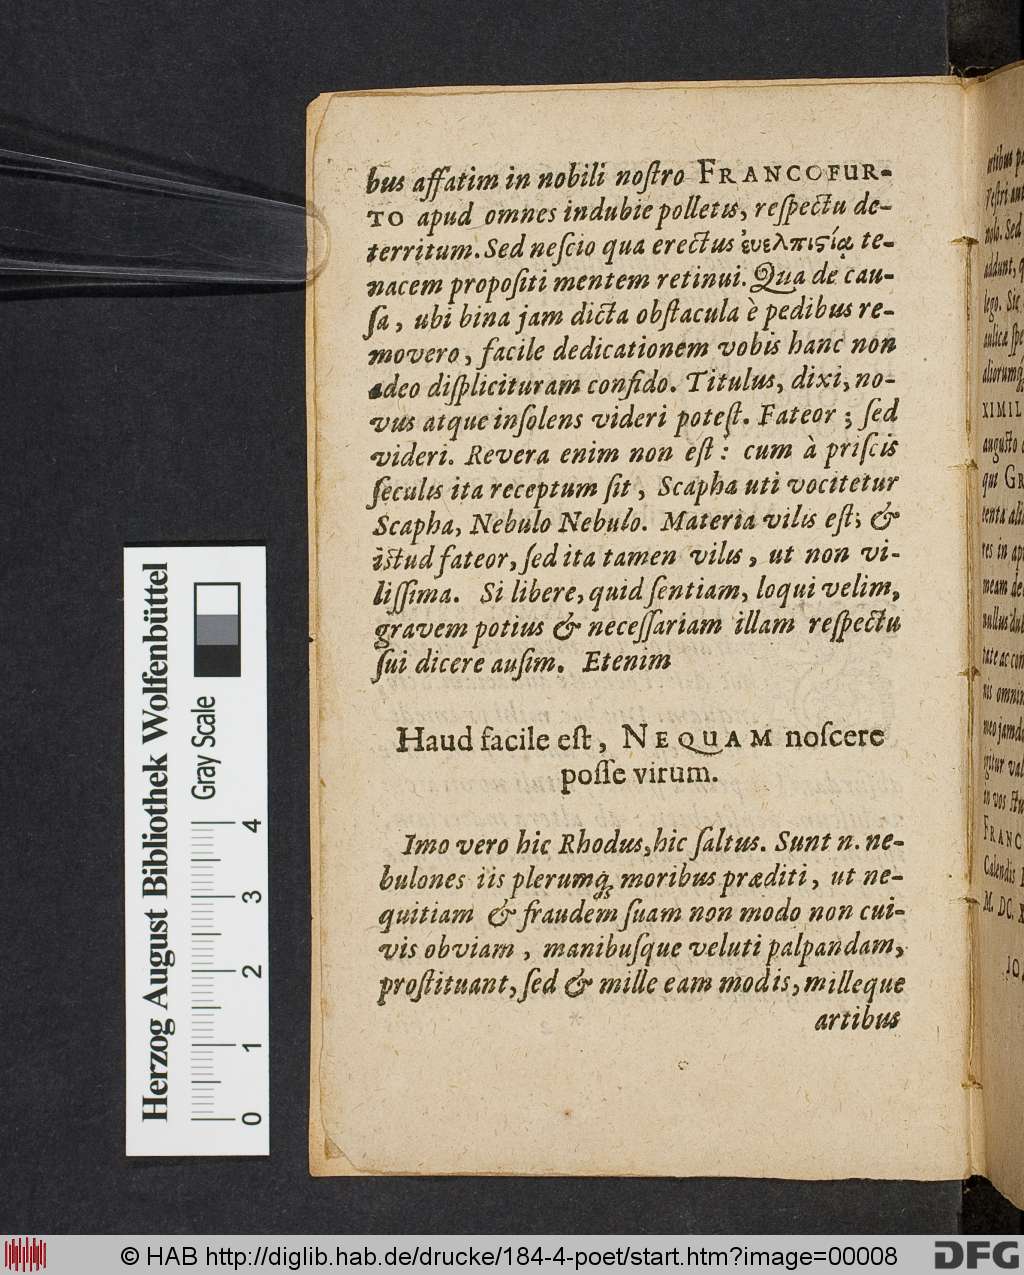 bus affatim in nobili noſtro FRANCOFUR-
TO apud omnes indubie polletis, reſpectu de-
territum. Sed neſcio qua erectus ἐυελπιςίᾳ te-
nacem propoſiti mentem retinui. Qua de cau-
ſa, ubi bina jam dicta obſtacula è pedibus re-
movero, facile dedicationem vobis hanc non
adeo diſplicituram confido. Titulus, dixi, no-
vus atque inſolens videri poteſt. Fateor; ſed
videri. Revera enim non eſt: cum à priſcis
ſeculis ita receptum ſit, Scapha uti vocitetur
Scapha, Nebulo Nebulo. Materia vilis eſt; &
iſtud fateor, ſed ita tamen vilis, ut non vi-
liſſima. Si libere, quid ſentiam, loqui velim,
gravem potius & neceſſariam illam reſpectu
ſui dicere auſim. Etenim
Haud facile eſt, NEQUAM noſcere
poſſe virum.
Imo vero hic Rhodus, hic ſaltus. Sunt n. ne-
bulones iis plerumq; moribus præditi, ut ne-
quitiam & fraudem ſuam non modo non cui-
vis obviam, manibuſque veluti palpandam,
proſtituant, ſed & mille eam modis, milleque
artibus
Herzog August Bibliothek Wolfenbüttel
Gray Scale
0 1 2 3 4
nolo. Sed
addunt,
lego. Sic
XIMIL
auguſto
que GR
res in
meam de
nis omnin
FRANC
Calendis
M. DC. X
© HAB http://diglib.hab.de/drucke/184-4-poet/start.htm?image=00008
DFG